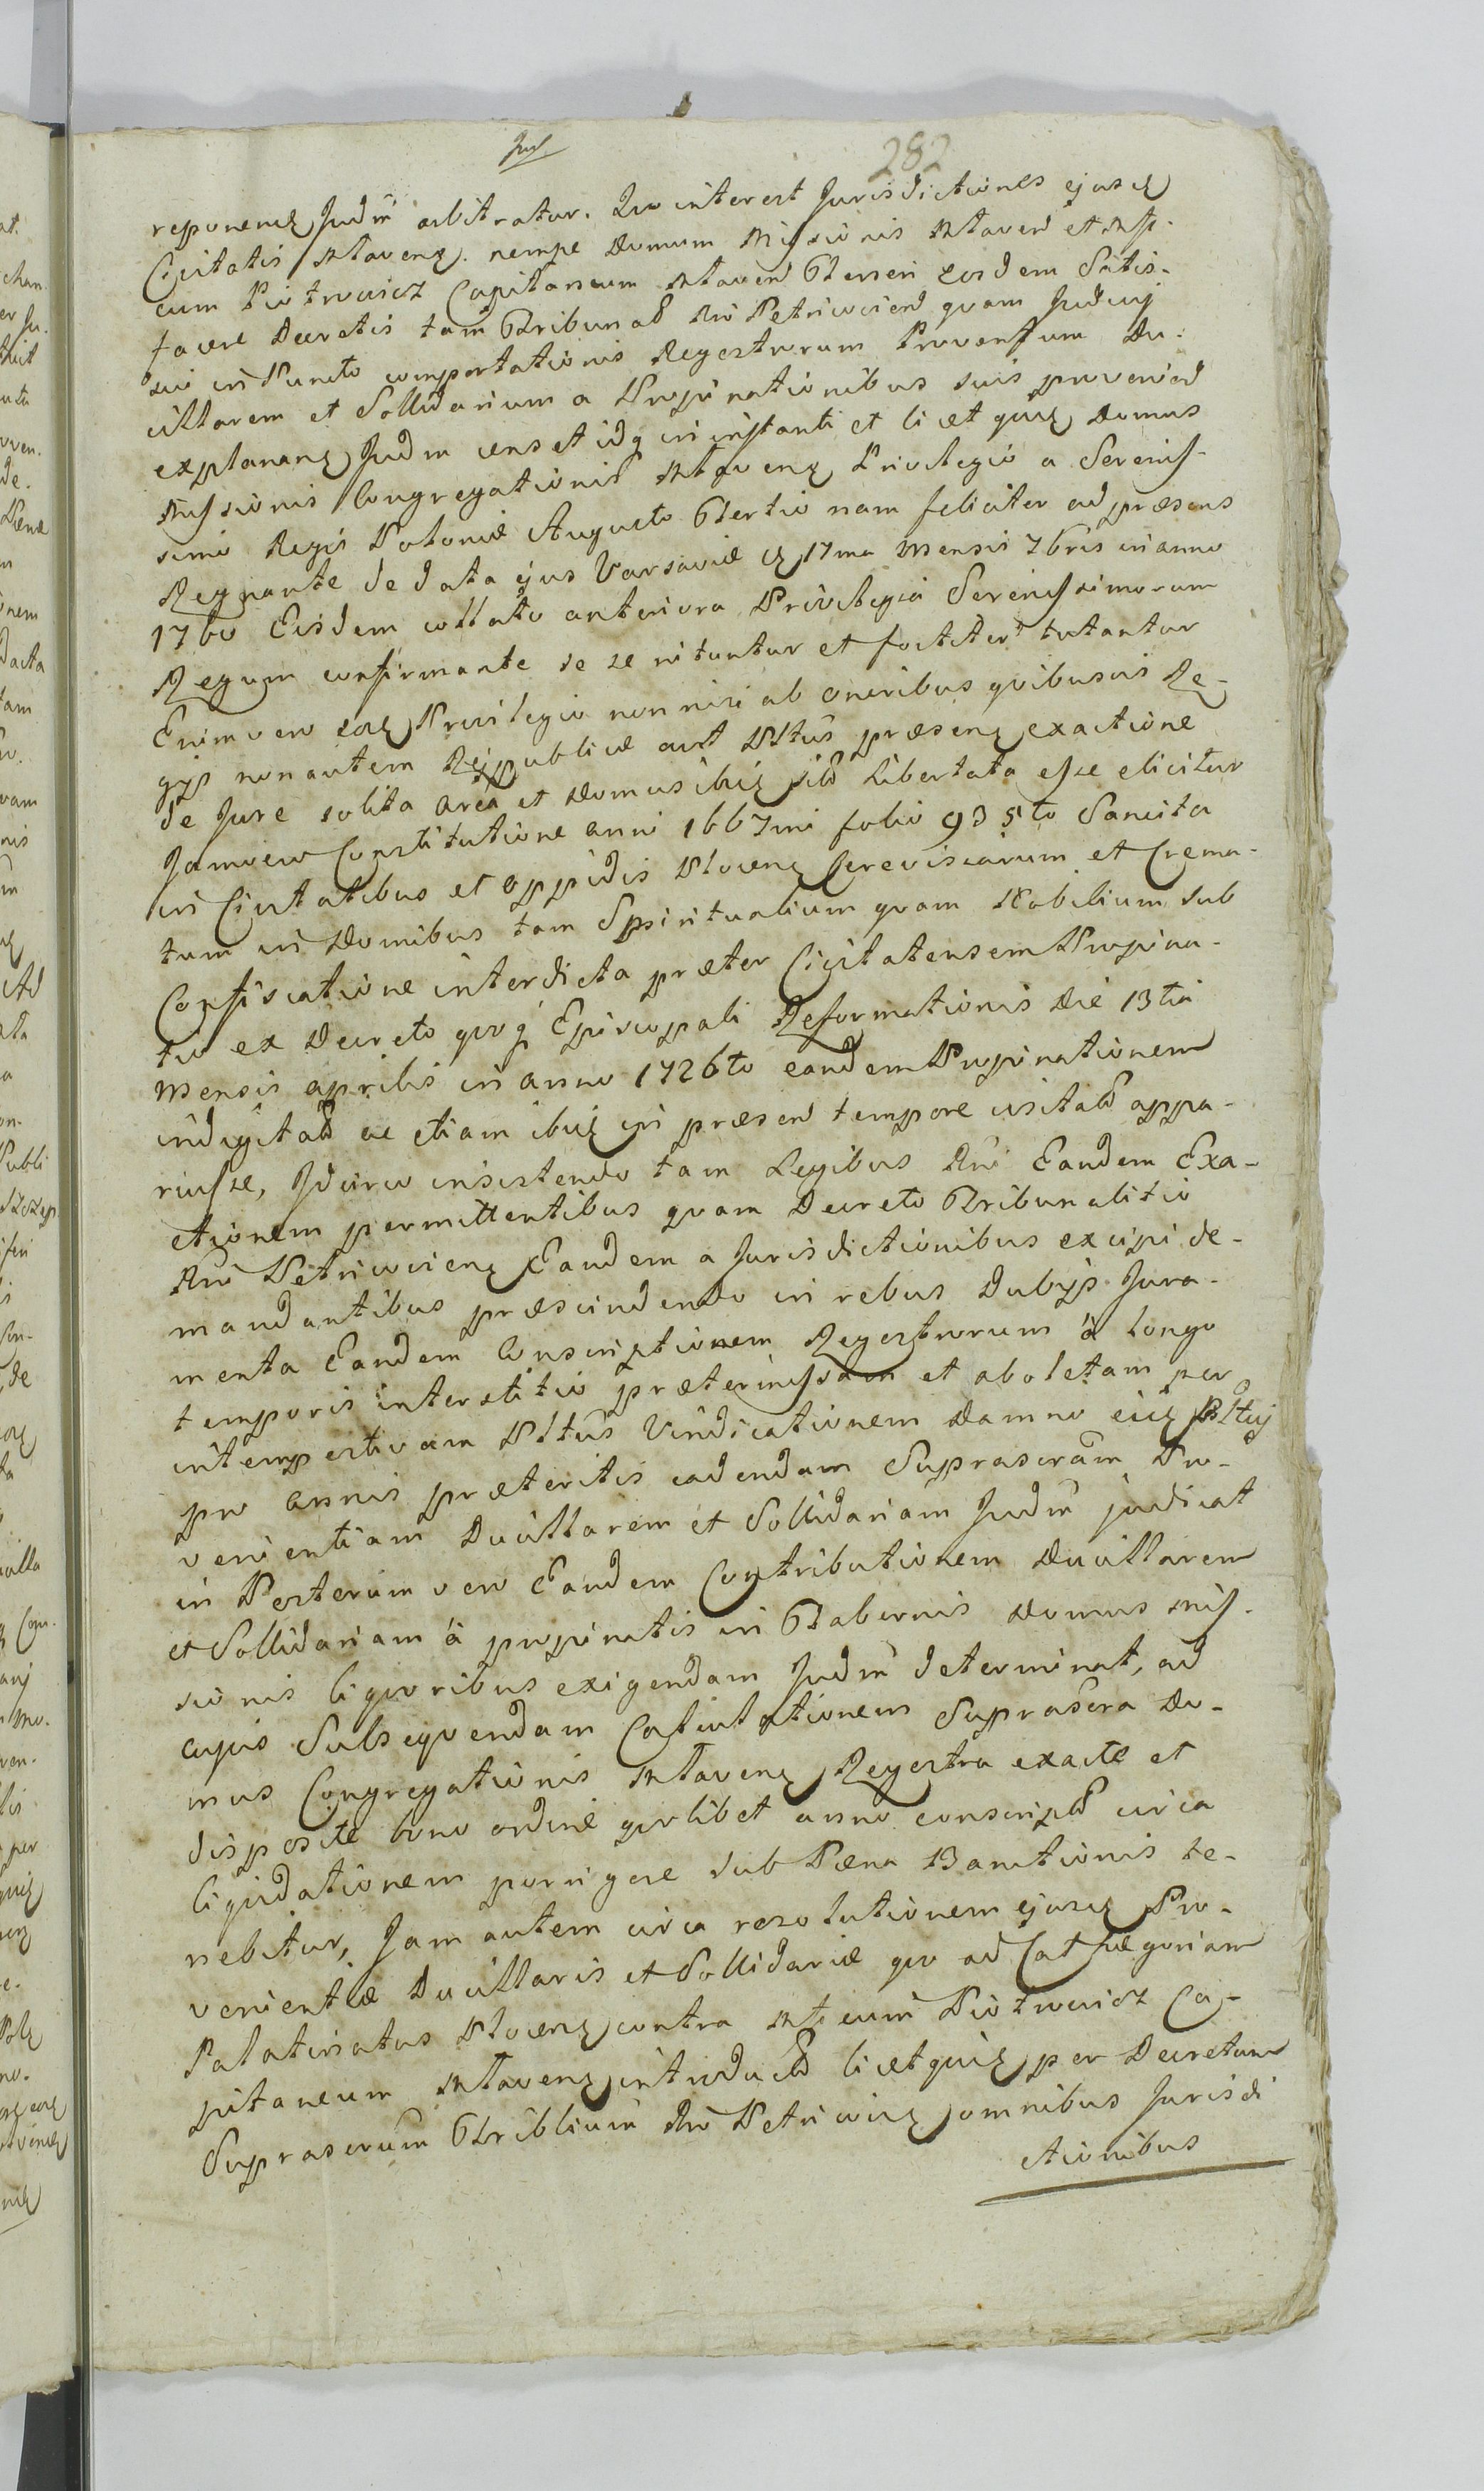 282
reponend Judm arbitratur. Quo interest Jurisdictiones ejusd
Civitatis Mlavens. nempe Domum Missionis Mlaven et Mf.
cum Piotrowicz Capitaneum Mlaven Teneri eosdem Satis-
facere Decretis tam Tribunal Rni Petricovien quam Judicij
sui in Puncto comportationis Regestrorum Proventum Du-
cillarem et Sollidarium a Propinationibus suis provenien
explanans Judm censet idq in instanti et licet quid Domus
Missionis Congregationis Mlavens Privilegio a Serenis-
simo Regis Poloniæ Augusto Tertio nam feliciter ad præsens
Regnante de data ejus Varsaviæ d 17ma Mensis 7bris in anno
1760 Eisdem collato anteriora Privilegia Serenissimorum
Regum confirmante se se nituntur et fortiter tutantur
Enimvero eod Privilegio non nisi ab oneribus quibusvis Re-
gijs non autem Reipublicæ aut Pltus præsens exactione
de Jure solita area et Domus ibid sit Libertata esse elicitur
Jamvero Constitutione anni 1667mi folio 935to Sancita
in Civitatibus et Oppidis Plocens Cerevisiarum et Crema-
tum in Domibus tam Spiritualium quam Nobilium sub
Confiscatione interdicta præter Civitatensem Propina-
tio ex Decreto quoq Episcopali Reformationis Die 13tia
Mensis aprilis in anno 1726to eandem Propinationem
indigitat ac etiam ibid in præsen tempore usitat appa-
ruisse, Idcirco insistendo tam Legibus Rni Eandem Exa-
ctionem permittentibus quam Decreto Tribunalitio
Rni Petricoviens Eandem a Jurisdictionibus excipi de-
mandantibus præscindendo in rebus Dubijs Jura-
menta Eandem Conscriptionem Regestrorum à longo
temporis interstitio prætermissam et aboletam per
intempestivam Pltus Vindicationem Damno eid Pltuj
pro annis præteritis cadendam Suprascram Pro-
venientiam Ducillarem et Sollidariam Judm judicat
in Posterum vero Eandem Contributionem Ducillarem
et Sollidariam à propinatis in Tabernis Domus Mis-
sionis liquoribus exigendam Judm determinat, ad
cujus Subsequendam Calculationem Suprascra Do-
mus Congregationis Mlavens Regestra exacte et
disposite bono ordine quolibet anno conscript circa
liquidationem porrigere sub Pæna Bannitionis te-
nebitur, Jam autem circa resolutionem ejusd Pro-
venientiæ Ducillaris et Sollidariæ quo ad Cathegoriam
Palatinatus Plocens contra Mfcum Piotrowicz Ca-
pitaneum Mlavens introduct licet quid per Decretum
Suprascrum Triblium Rni Petricovis omnibus Jurisdi
ctionibus